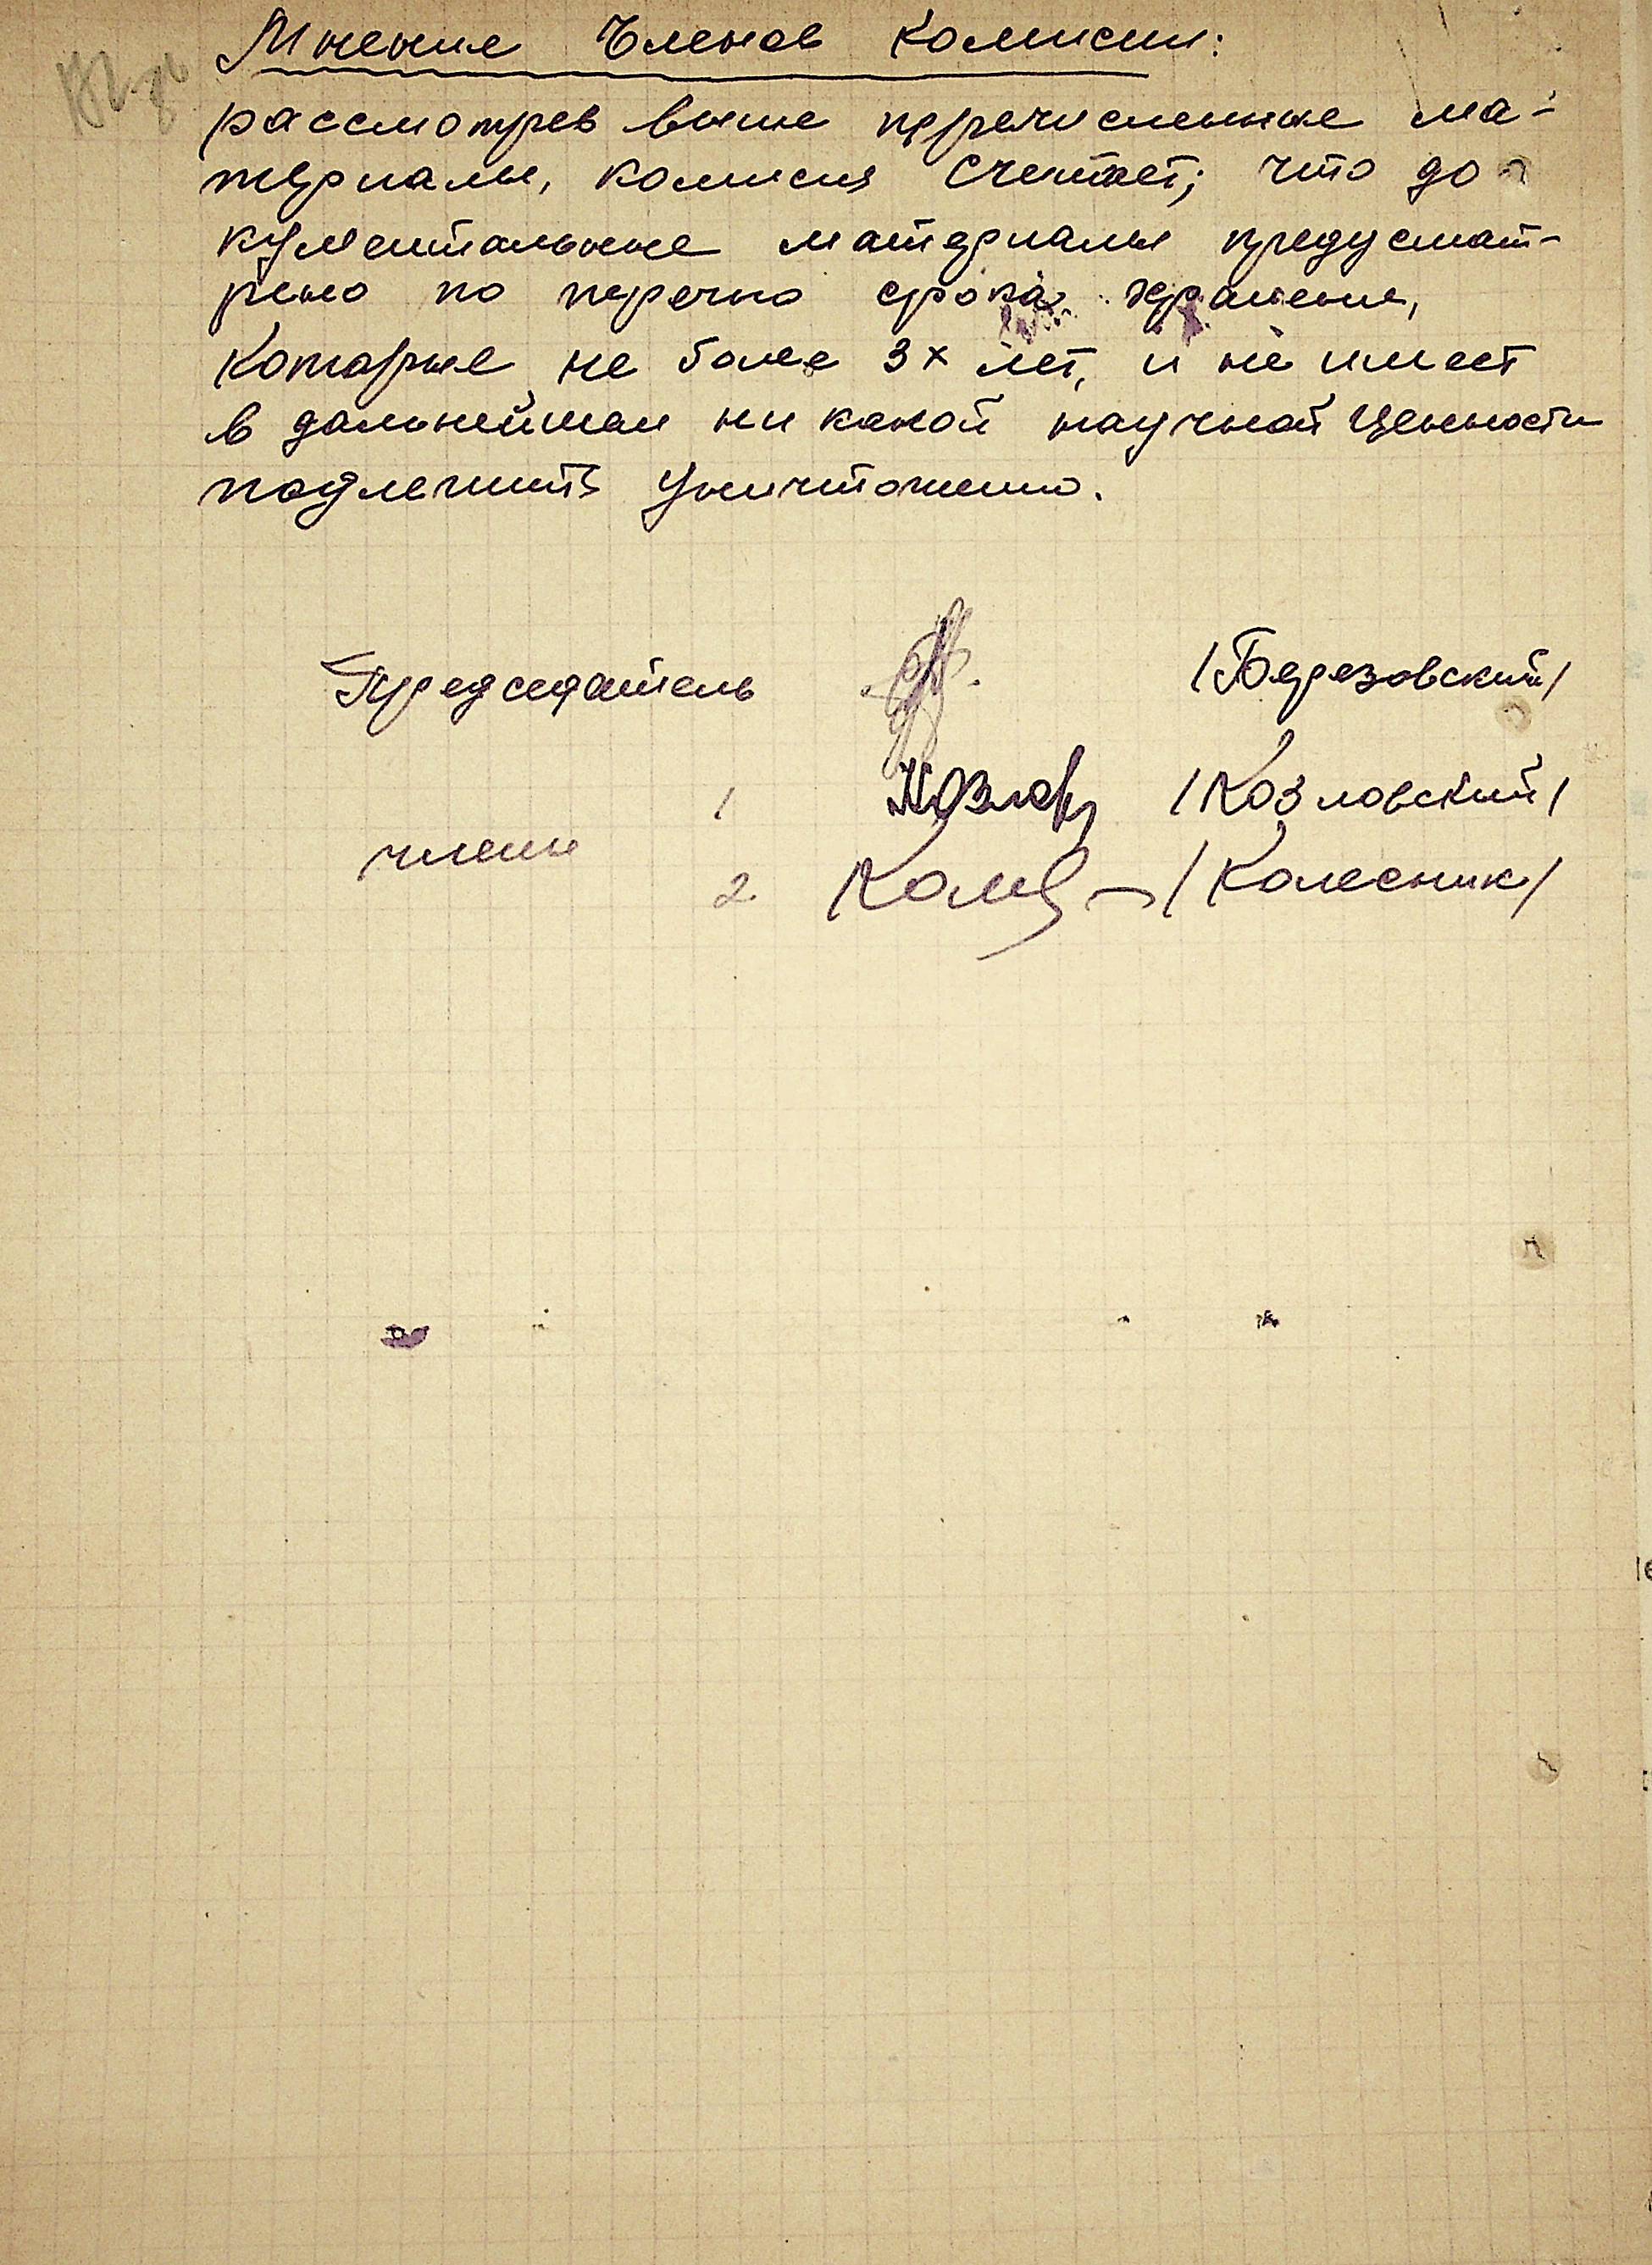 Мнение Членов Комисии:
рассмотрев выше перечисленные ма-
териалы, комисия Считает, что до
кументальные материалы предусмат-
рено по перечню срока хранения,
которые не более 3х лет, и не имеет
в дальнейшем ни какой научной ценности
подлежить уничтожению.
Председатель /Березовский/
1 Козлов /Козловский/
члены
2. /Колесник/